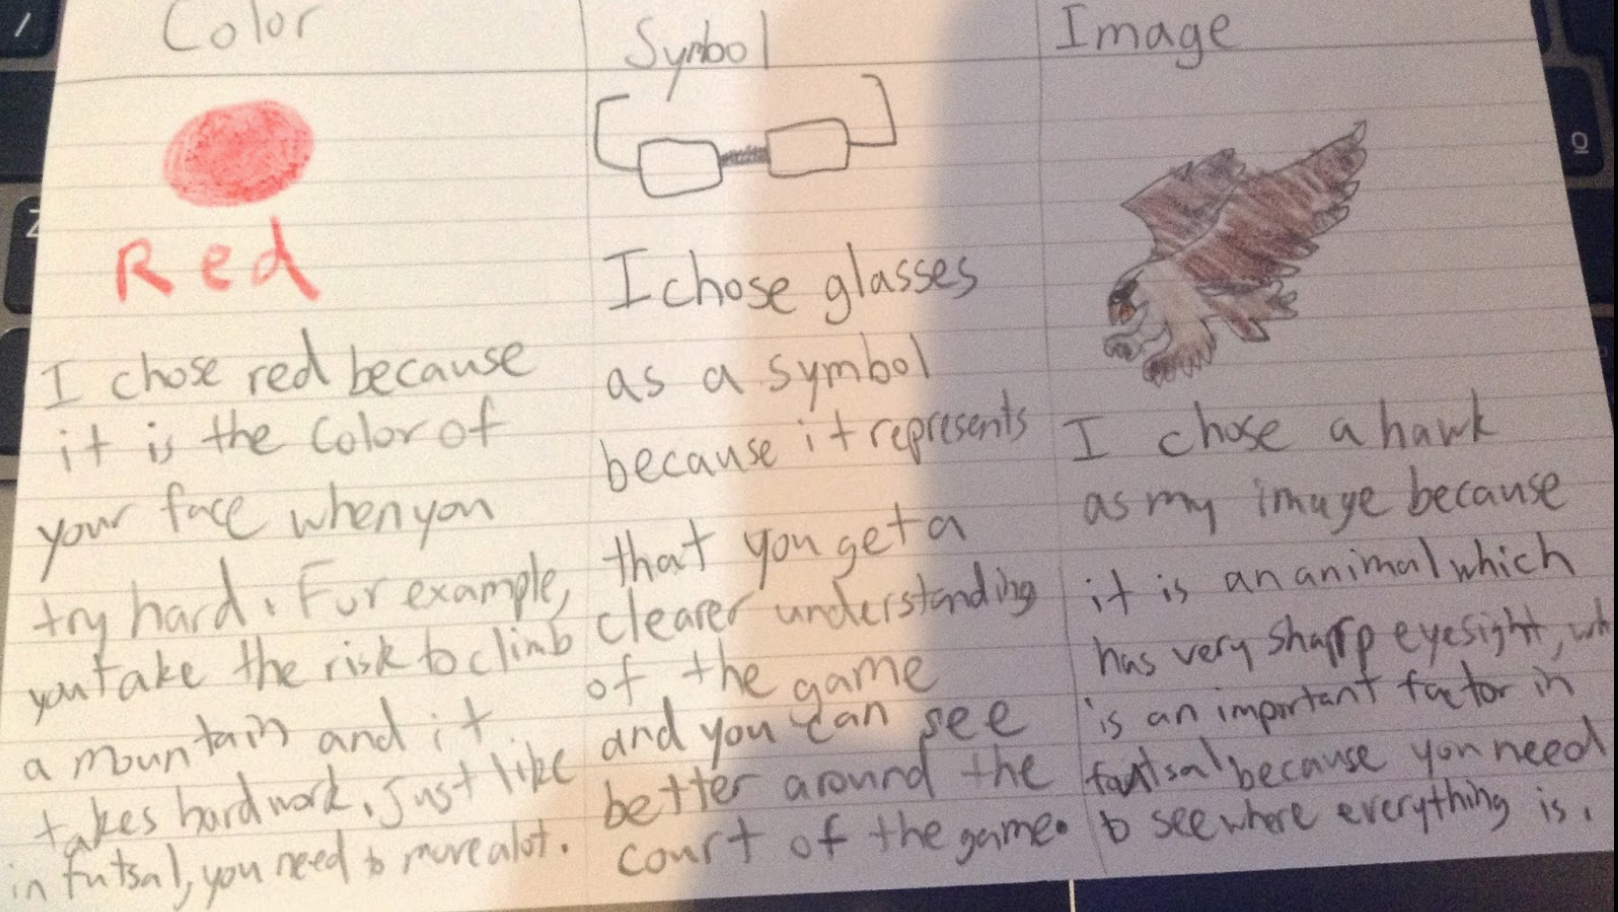 Color
Red
I chose red because
it is the color of
your face when you
try hard. For example,
you take the risk to climb
a mountain and it
takes hard work. Just like
in futsal, you need to move alot.
Symbol
I chose glasses
as a symbol
because it represents
that you get a
clearer understanding
of the game
and you can see
better around the
court of the game.
Image
I chose a hawk
as my image because
it is an animal which
has very sharp eyesight, wh
is an important factor in
futsal because you need
to see where everything is.
Z
O
/